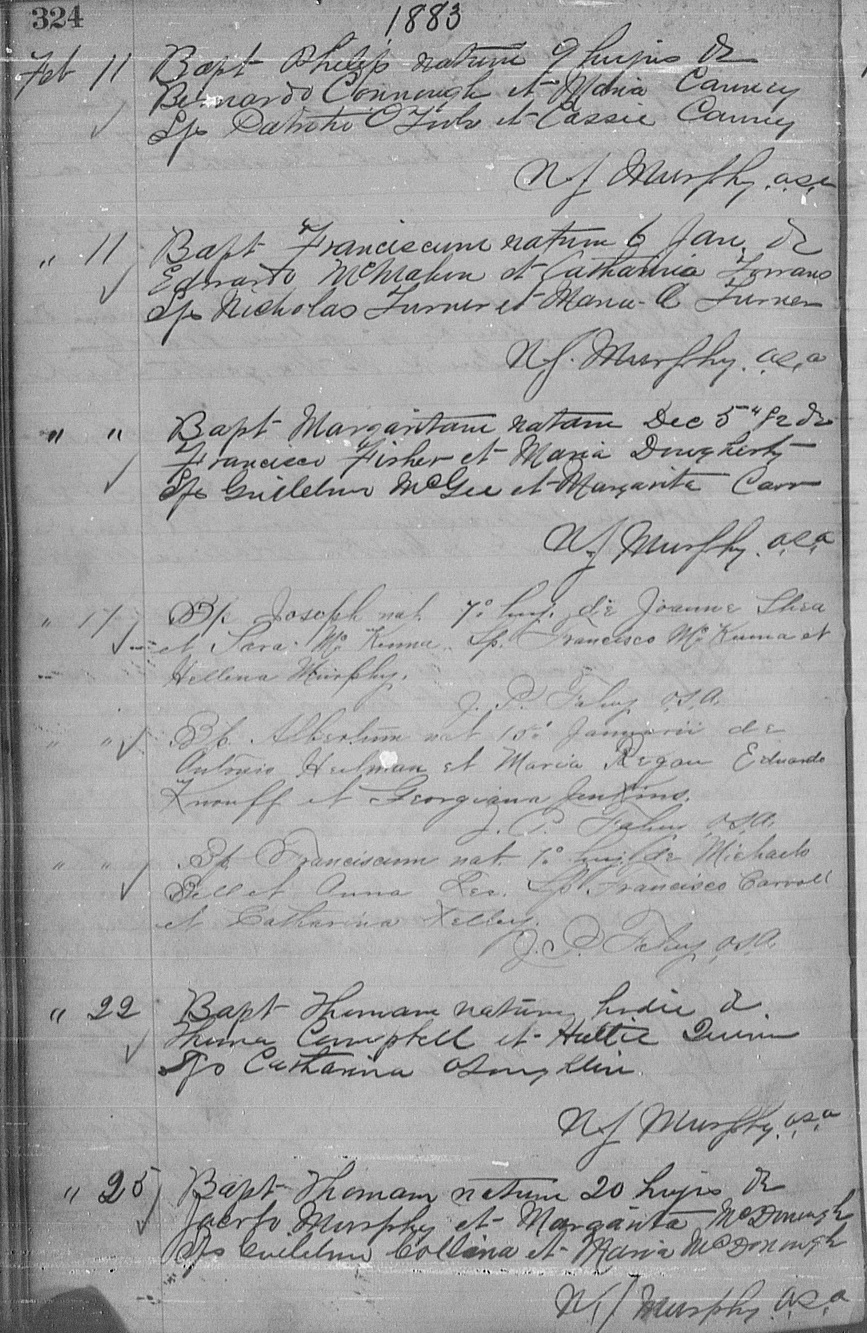 324 1883
Feb 11 Bapt Philip natum 9 hujus de
Bernardo Connough et Maria Canney
Sps Patritio O'Toole et Cassie Canney
N J Murphy. o.s.a
" 11 Bapt Franciscum natum 6 Jan. de
Edwardo McMahon et Catharina
Sps Nicholas Turner et Maria C Turner
N J. Murphy. o.s.a
" " Bapt Margaritam natam Dec 5" 82 de
Francisco Fisher et Maria Dougherty
Sps Guilelmo McGee et Margarita Carr
N J Murphy. o.s.a
" 11 Bp. Joseph nat. 7º huj. de Joanne Shea
et Sara Mc Kenna. Sp. Francisco McKenna et
Hellena Murphy.
J. P. Fahey o.s.a.
" " Bp. Albertum nat 10º Januarii de
Antonio Heilman et Maria Regan Eduardo
Knouff et Georgiana Jenkins.
J. P. Fahey o.s.a.
" " Bp. Franciscum nat. 7º huj. de Michaelo
Bell et Anna Lee. Sp. Francisco Carroll
et Catharina Kelley.
J. P. Fahey o.s.a.
" 22 Bapt Thomam natum hodie de
Thoma Campbell et Hattie Quinn
Sps Catharina
N J Murphy. o.s.a
" 25 Bapt Thomam natum 20 hujus de
Jacobo Murphy et Margarita McDonough
Sps Guilelmo Collins et Maria McDonough
N. J Murphy. o.s.a